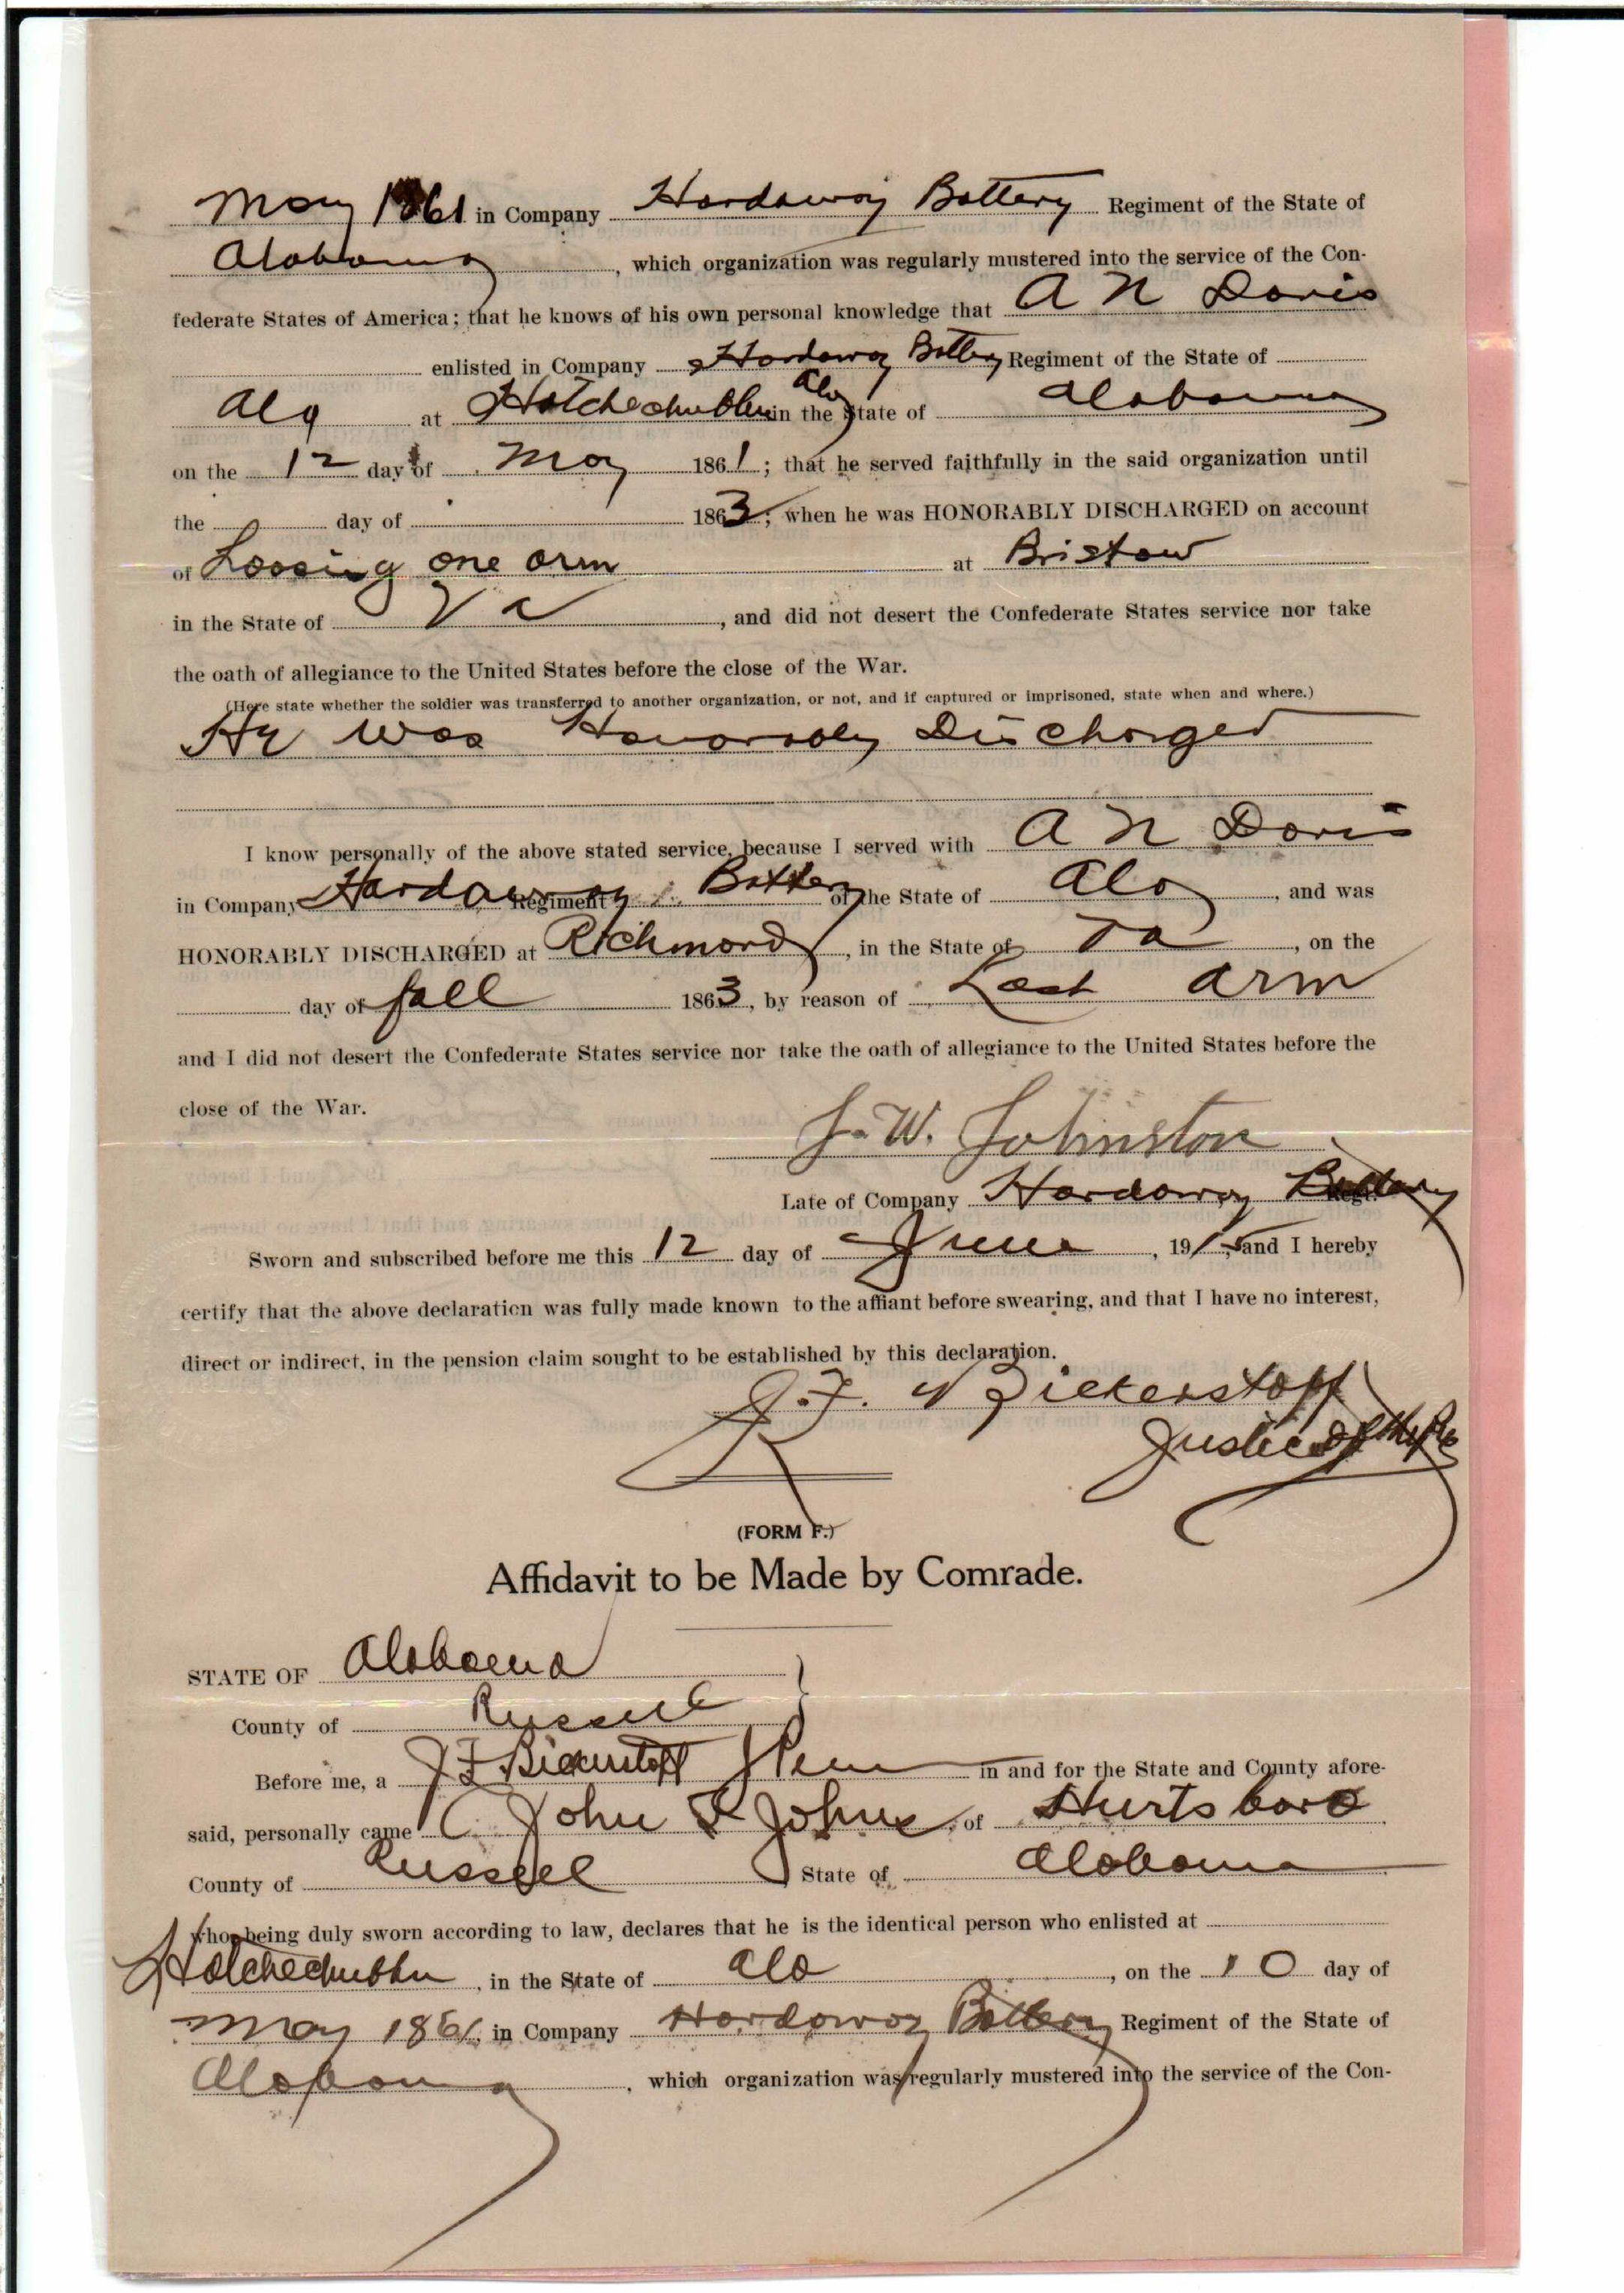 May 1861 in Company Hardaway Battery Regiment of the State of
Alabama, which organization was regularly mustered into the service of the Con-
federate States of America; that he knows of his own personal knowledge that A N Davis
enlisted in Company Hardaway Battery Regiment of the State of
Ala at Hatchechubbee Ala in the State of Alabama
on the 12 day of May 1861; that he served faithfully in the said organization until
the day of 1863; when he was HONORABLY DISCHARGED on account
of Loosing one arm at Bristow
in the State of Va, and did not desert the Confederate States service nor take
the oath of allegiance to the United States before the close of the War.
(Here state whether the soldier was transferred to another organization, or not, and if captured or imprisoned, state when and where.)
He was Honorably Discharged
I know personally of the above stated service, because I served with A N Davis
in Company Hardaway Regiment Battery of the State of Ala, and was
HONORABLY DISCHARGED at Richmond, in the State of Va, on the
day of fall 1863, by reason of Lost arm
and I did not desert the Confederate States service nor take the oath of allegiance to the United States before the
close of the War.
J. W. Johnston
Late of Company Hardaway Battery Regt.
Sworn and subscribed before me this 12 day of June, 1915, and I hereby
certify that the above declaration was fully made known to the affiant before swearing, and that I have no interest,
direct or indirect, in the pension claim sought to be established by this declaration.
J. F. Bickerstaff
Justice of the Pe
(FORM F.)
Affidavit to be Made by Comrade.
STATE OF Alabama
County of Russell
Before me, a J F Bickerstaff J Peace in and for the State and County afore-
said, personally came John F Johns of Hurtsboro
County of Russell State of Alabama
who being duly sworn according to law, declares that he is the identical person who enlisted at
Hatchechubbee, in the State of Ala, on the 10 day of
May 1861, in Company Hardaway Battery Regiment of the State of
Alabama, which organization was regularly mustered into the service of the Con-